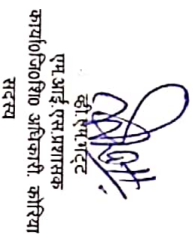 व्ही.एम.गट्ट
एम.आई.एस.प्रशासक
कार्या०जि०शि० अधिकारी, कोरिया
सदस्य